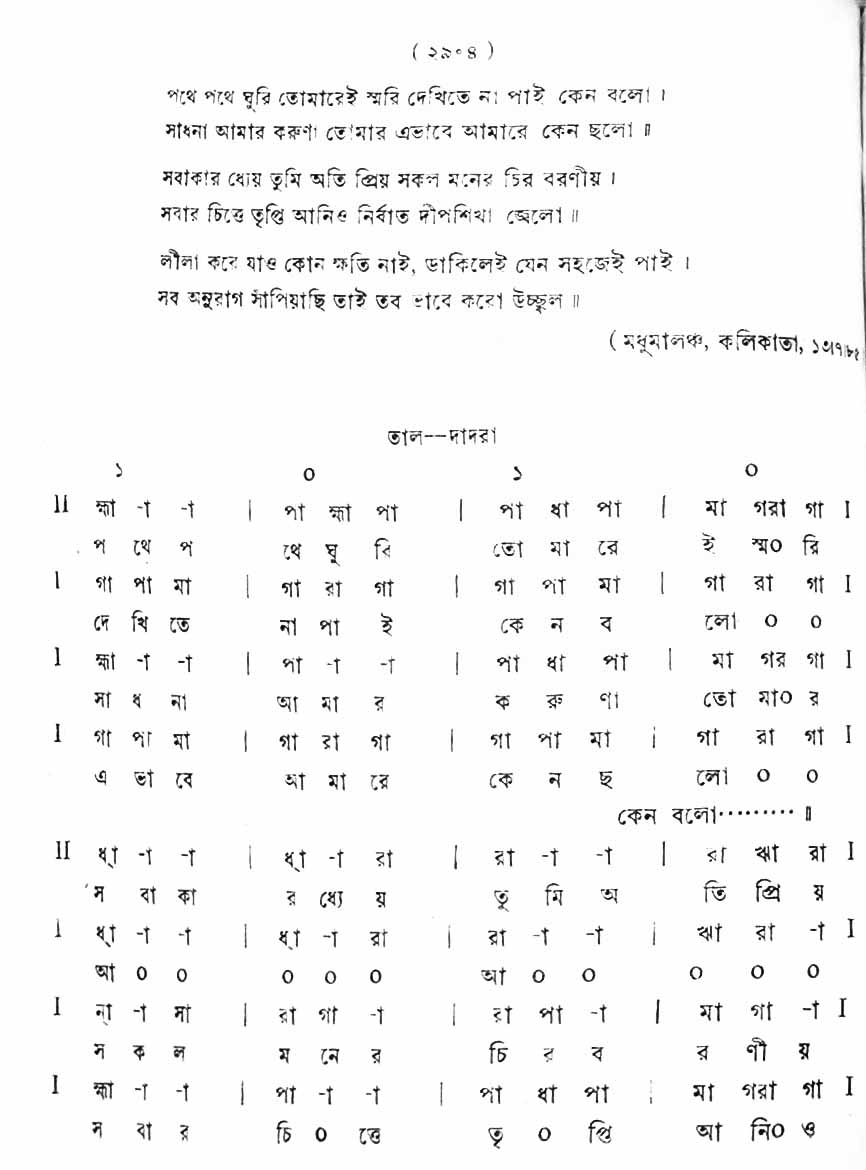 ( ২৯০৪ )
পথে পথে ঘুরি তোমারেই স্মরি দেখিতে না পাই কেন বলো ।
সাধনা আমার করুণা তোমার এভাবে আমারে কেন ছলো ॥
সবাকার ধ্যেয় তুমি অতি প্রিয় সকল মনের চির বরণীয় ।
সবার চিত্তে তৃপ্তি আনিও নির্বাত দীপশিখা জ্বেলো ॥
লীলা করে যাও কোন ক্ষতি নাই, ডাকিলেই যেন সহজেই পাই ।
সব অনুরাগ সঁপিয়াছি তাই তব ভাবে করো উচ্ছ্বল ॥
( মধুমালঞ্চ, কলিকাতা,
তাল--দাদরা
১ ০ ১ ০
II হ্মা -া -া | পা হ্মা পা | পা ধা পা | মা গরা গা I
প থে প থে ঘু রি তো মা রে ই স্ম০ রি
I গা পা মা | গা রা গা | গা পা মা | গা রা গা I
দে খি তে না পা ই কে ন ব লো ০ ০
I হ্মা -া -া | পা -া -া | পা ধা পা | মা গর গা I
সা ধ না আ মা র ক রু ণা তো মা০ র
I গা পা মা | গা রা গা | গা পা মা | গা রা গা I
এ ভা বে আ মা রে কে ন ছ লো ০ ০
কেন বলো········· ॥
II ধ্া -া -া | ধ্া -া রা | রা -া -া | রা ঋা রা I
স বা কা র ধ্যে য় তু মি অ তি প্রি য়
I ধ্া -া -া | ধ্া -া রা | রা -া -া | ঋা রা -া I
আ ০ ০ ০ ০ ০ আ ০ ০ ০ ০ ০
I ন্া -া সা | রা গা -া | রা পা -া | মা গা -া I
স ক ল ম নে র চি র ব র ণী য়
I হ্মা -া -া | পা -া -া | পা ধা পা | মা গরা গা I
স বা র চি ০ ত্তে তৃ ০ প্তি আ নি০ ও